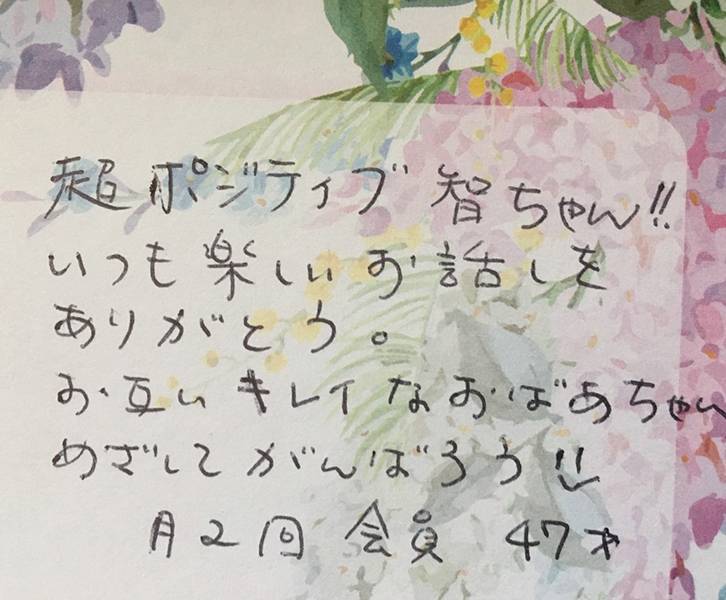 超ポジティブ 智ちゃん!!
いつも楽しいお話しを
ありがとう。
お互いキレイなおばあちゃん
めざしてがんばろう!!
月2回 会員 47才